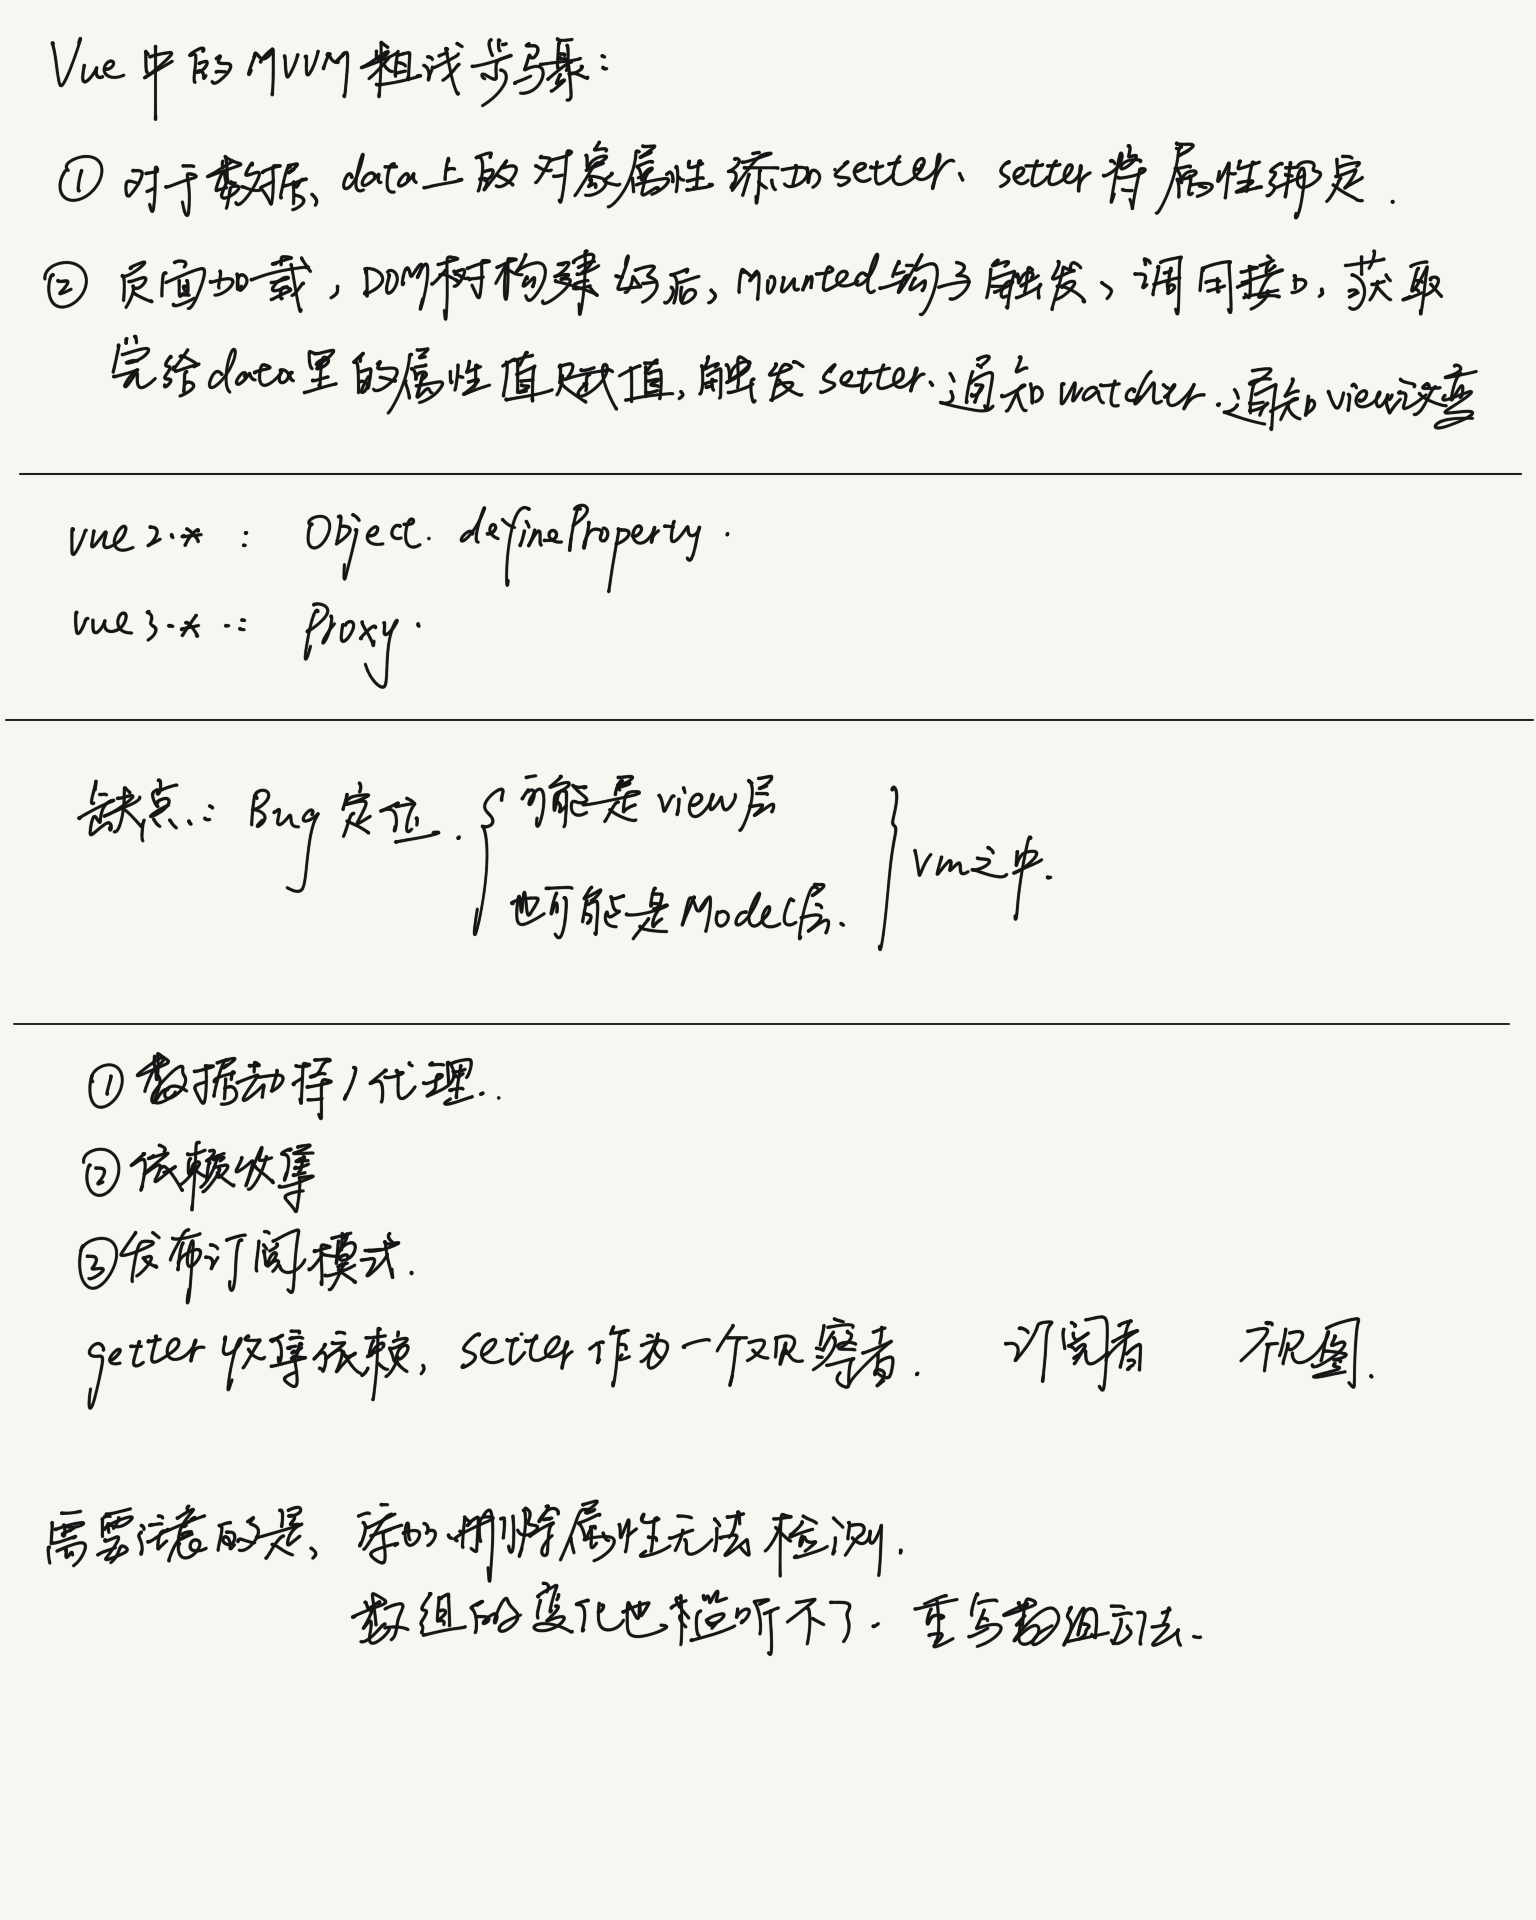 Vue中的MVVM粗浅步骤:
① 对于数据、data上的对象属性添加setter、setter将属性绑定.
② 页面加载, DOM树构建好后、Mounted钩子触发、调用接口, 获取
完给data里的属性值赋值, 触发setter、通知watcher.通知view改变
vue2.* : Object.defineProperty.
vue3.* : Proxy.
缺点: Bug定位. { 可能是view层
也可能是Model层. } vm之中.
① 数据劫持/代理.
② 依赖收集
③ 发布订阅模式.
getter收集依赖, setter作为一个观察者. 订阅者 视图.
需要注意的是、添加.删除属性无法检测.
数组的变化也监听不了. 重写数组方法.